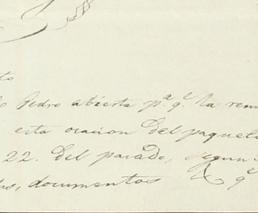 to
Pedro abierta pª qᵉ la rem
esta ocasion del paquete
22. del pasado, segun
documentos & qᵉ